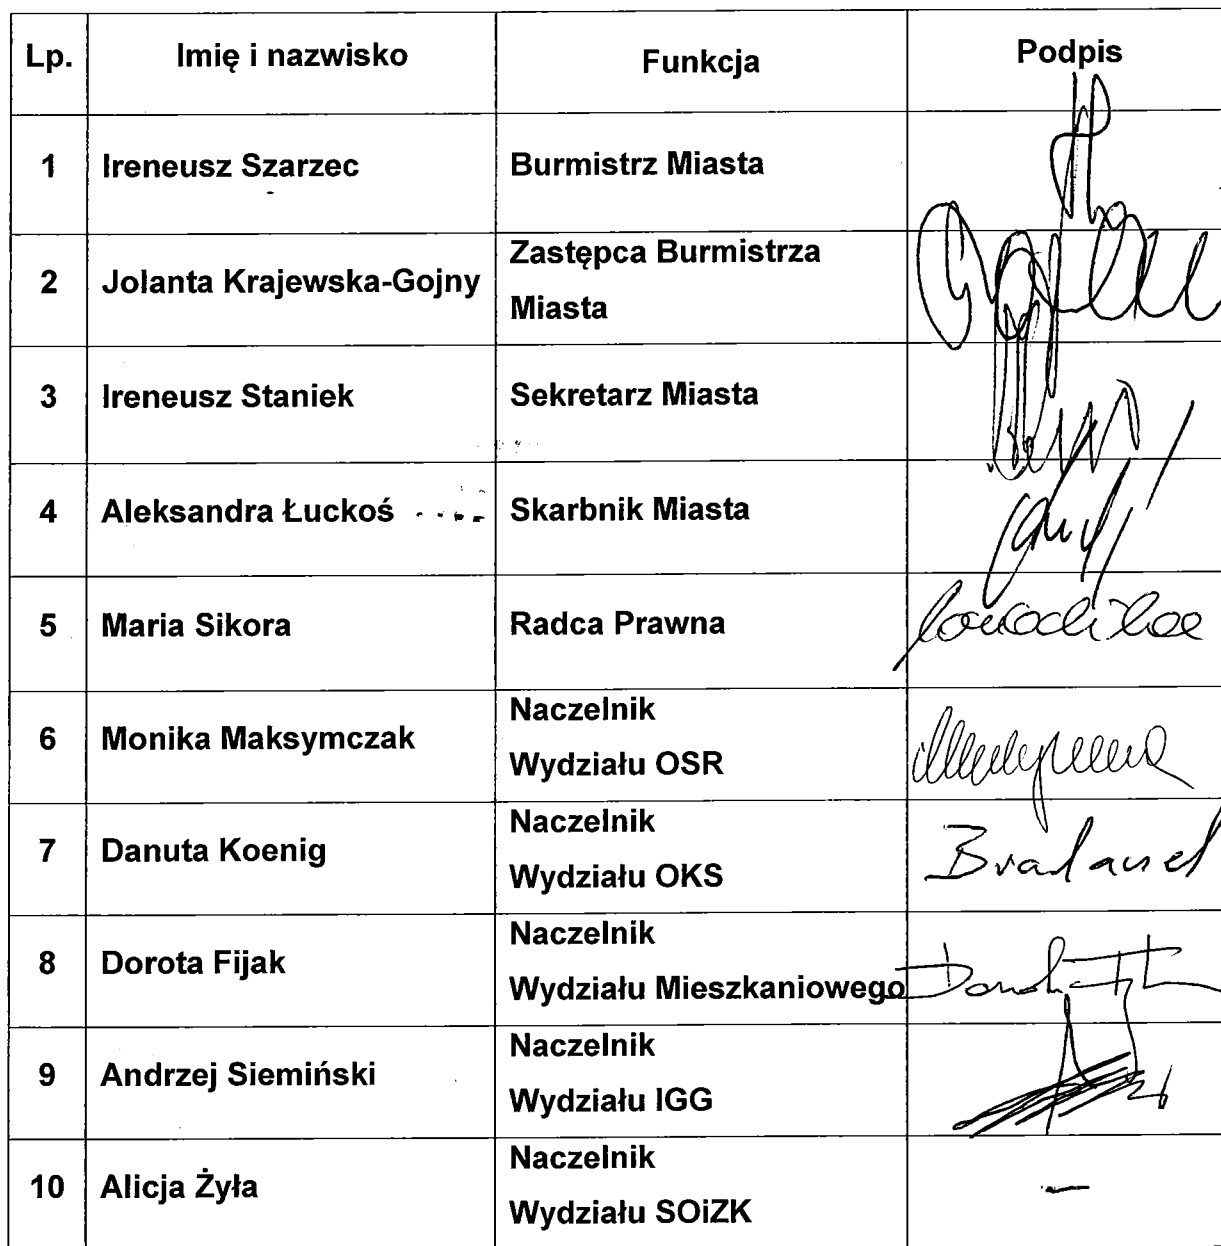 Lp. Imię i nazwisko Funkcja Podpis
1 Ireneusz Szarzec Burmistrz Miasta
2 Jolanta Krajewska-Gojny Zastępca Burmistrza
Miasta
3 Ireneusz Staniek Sekretarz Miasta
4 Aleksandra Łuckoś Skarbnik Miasta
5 Maria Sikora Radca Prawna
6 Monika Maksymczak Naczelnik
Wydziału OSR
7 Danuta Koenig Naczelnik
Wydziału OKS
8 Dorota Fijak Naczelnik
Wydziału Mieszkaniowego
9 Andrzej Siemiński Naczelnik
Wydziału IGG
10 Alicja Żyła Naczelnik
Wydziału SOiZK
–